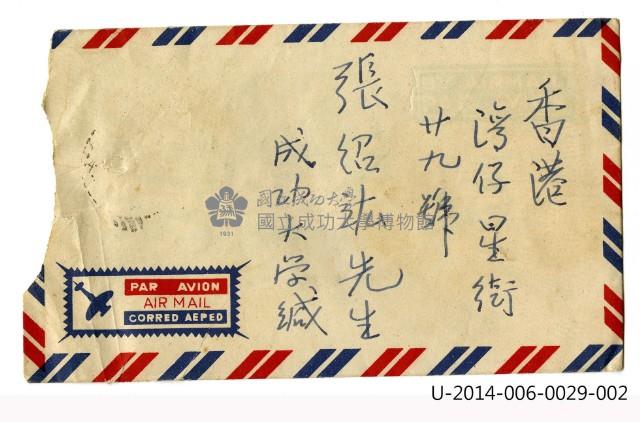 香港
灣仔星街
廿九號
張紹弘先生
成功大学緘
國立成功大學
國立成功大學博物館
1931
PAR AVION
AIR MAIL
CORREO AEREO
U-2014-006-0029-002